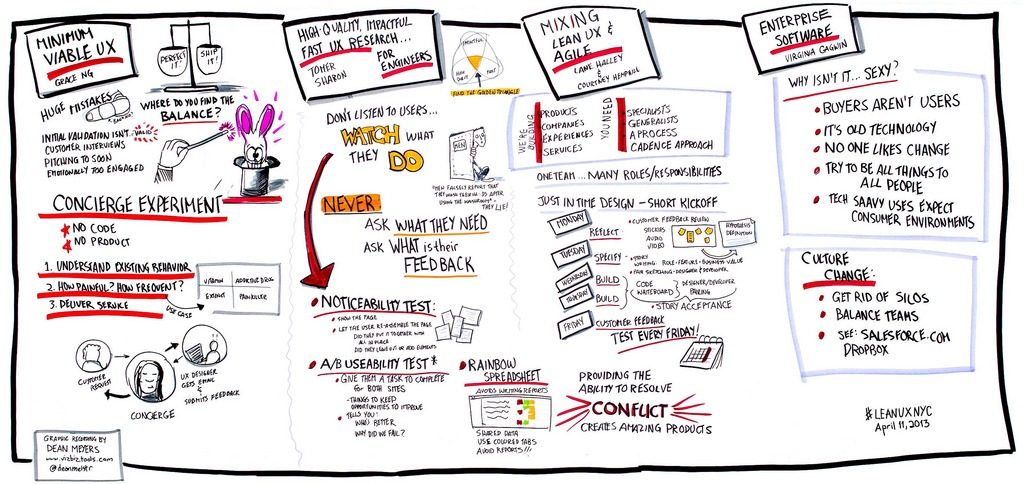 MINIMUM
VIABLE UX
GRACE NG
PERFECT
IT!
SHIP
IT!
HUGE MISTAKES
WHERE DO YOU FIND THE
BALANCE?
INITIAL VALIDATION ISN'T VALID
CUSTOMER INTERVIEWS
PITCHING TO SOON
EMOTIONALLY TOO ENGAGED
CONCIERGE EXPERIMENT
NO CODE
NO PRODUCT
1. UNDERSTAND EXISTING BEHAVIOR
2. HOW PAINFUL? HOW FREQUENT?
3. DELIVER SERVICE
USE CASE
VITAMIN
ADDICTIVE DRUG
PAINKILLER
CUSTOMER
REQUEST
UX DESIGNER
GETS EMAIL
&
SUBMITS FEEDBACK
CONCIERGE
GRAPHIC RECORDING BY
DEAN MEYERS
www.vizbiztools.com
@deanmeistr
HIGH-QUALITY, IMPACTFUL
FAST UX RESEARCH...
FOR
ENGINEERS
TOMER
SHARON
FIND THE GOLDEN TRIANGLE
DON'T LISTEN TO USERS...
WATCH WHAT
THEY DO
MEN
THEY LIE!
NEVER
ASK WHAT THEY NEED
ASK WHAT is their
FEEDBACK
NOTICEABILITY TEST:
SHOW THE PAGE
LET THE USER RE-ASSEMBLE THE PAGE
DID THEY PUT IT TOGETHER WITH
ALL IN PLACE
DID THEY LEAVE OUT OR ADD ELEMENTS
A/B USEABILITY TEST*
GIVE THEM A TASK TO COMPLETE
for BOTH SITES
- THINGS TO KEEP
OPPORTUNITIES TO IMPROVE
TELLS YOU:
WHO'S BETTER
WHY DID WE FAIL?
RAINBOW
SPREADSHEET
AVOIDS WRITING REPORTS
SHARED DATA
USE COLORED TABS
AVOID REPORTS!!!
MIXING
LEAN UX &
AGILE
LANE HALLEY
&
COURTNEY HEMPHILL
WE'RE
BUILDING
PRODUCTS
COMPANIES
EXPERIENCES
SERVICES
YOU NEED
SPECIALISTS
GENERALISTS
A PROCESS
CADENCE APPROACH
ONE TEAM... MANY ROLES/RESPONSIBILITIES
JUST IN TIME DESIGN - SHORT KICKOFF
MONDAY
REFLECT
CUSTOMER FEEDBACK REVIEW
STICKIES
AUDIO
VIDEO
HYPOTHESIS
DEFINITION
TUESDAY
SPECIFY
STORY
WRITING: ROLE - FEATURE - BUSINESS VALUE
PAIR SKETCHING - DESIGNER & DEVELOPER
BUILD
BUILD
CODE
WHITEBOARD
DESIGNER/DEVELOPER
PAIRING
STORY ACCEPTANCE
FRIDAY
CUSTOMER FEEDBACK
TEST EVERY FRIDAY!
PROVIDING THE
ABILITY TO RESOLVE
CONFLICT
CREATES AMAZING PRODUCTS
ENTERPRISE
SOFTWARE
VIRGINIA CAGWIN
WHY ISN'T IT... SEXY?
BUYERS AREN'T USERS
IT'S OLD TECHNOLOGY
NO ONE LIKES CHANGE
TRY TO BE ALL THINGS TO
ALL PEOPLE
TECH SAAVY USES EXPECT
CONSUMER ENVIRONMENTS
CULTURE
CHANGE:
GET RID OF SILOS
BALANCE TEAMS
SEE: SALESFORCE.COM
DROPBOX
#LEANUXNYC
April 11, 2013